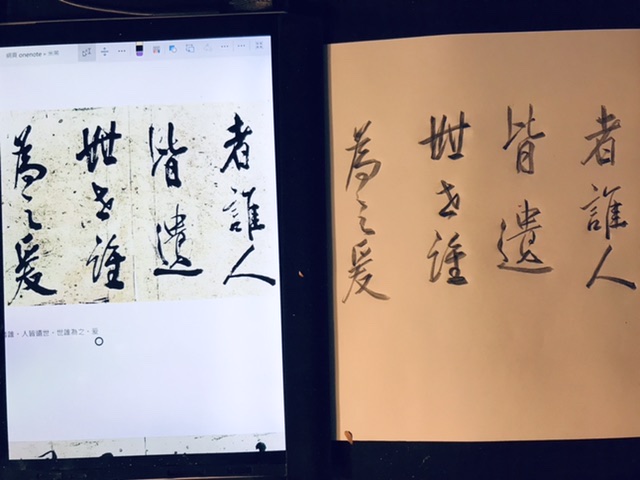 onenote
者誰人
皆遺
世世誰
為之爰
誰，人皆遺世，世誰為之。爰
者誰人
皆遺
世世誰
為之爰